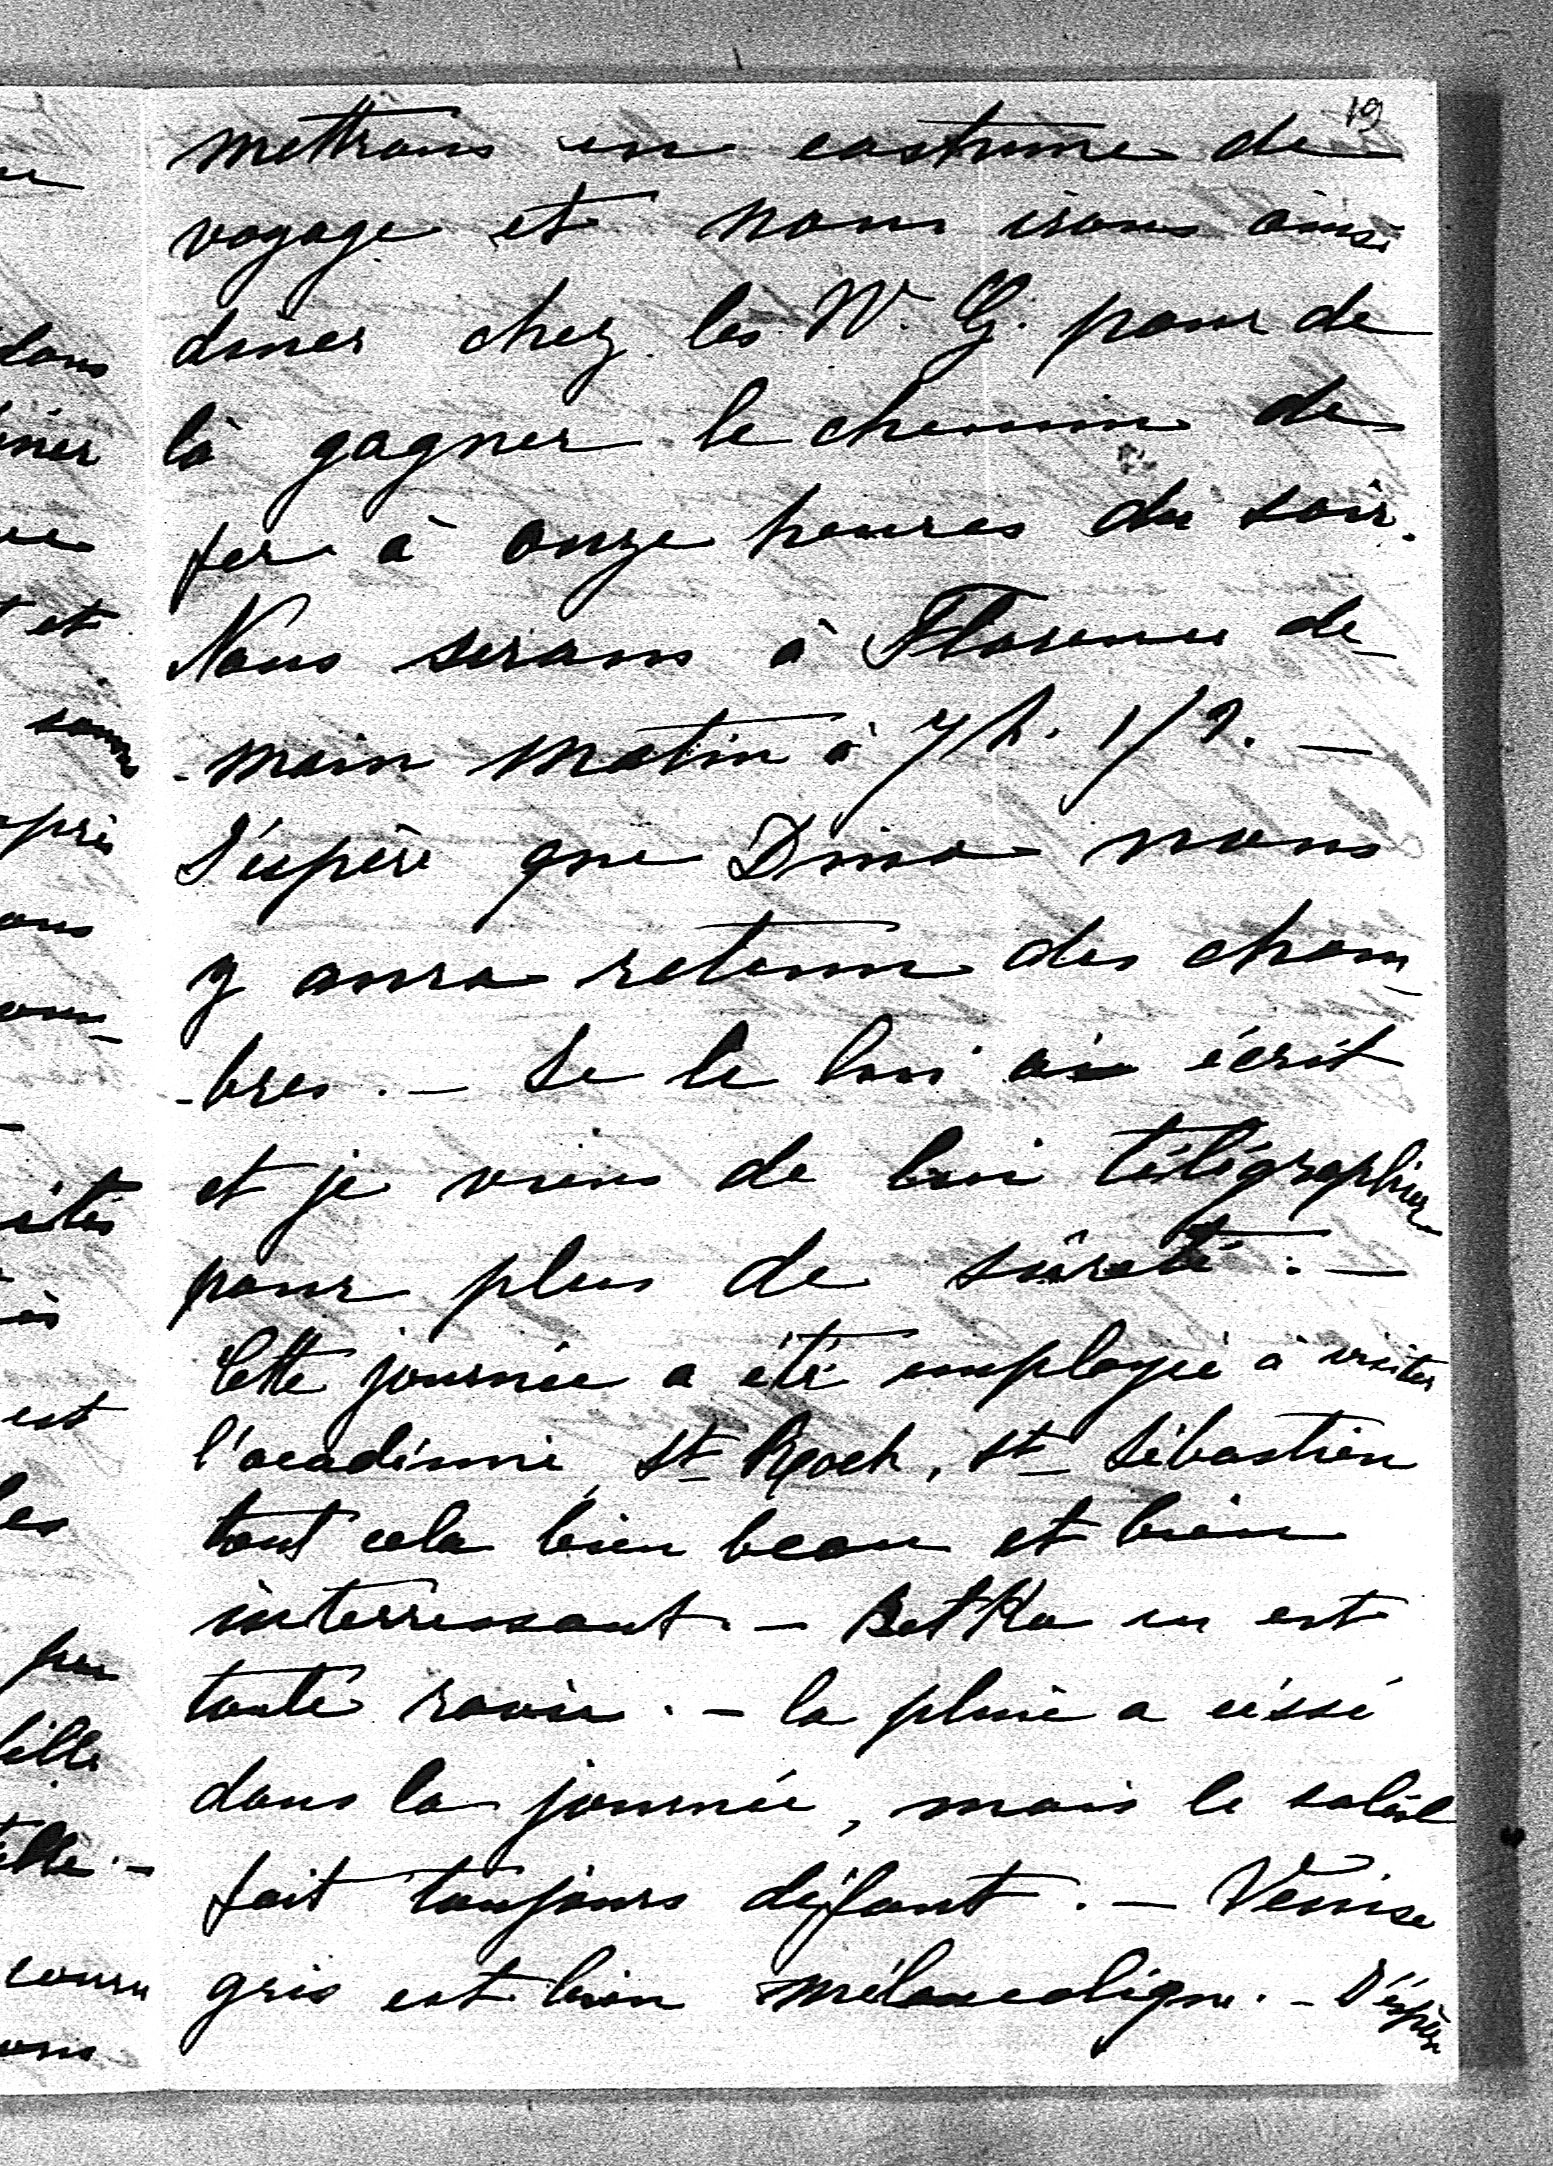 19
mettrons en costume de
voyage et nous irons ainsi
diner chez les W. G. pour de
là gagner le chemin de
fer à onze heures du soir.
Nous serons à Florence de-
-main matin à 7 h. 1/2. —
J'espère que Dino nous
y aura retenu des cham-
-bres. — Je le lui ai écrit
et je viens de lui télégraphier
pour plus de sûreté. —
Cette journée a été employée à visiter
l'académie, St Roch, St Sébastien
tout cela bien beau et bien
interressant. — Betka en est
toute ravie. — la pluie a céssé
dans la journée, mais le soleil
fait toujours défaut. — Venise
gris est bien mélancolique. — J'éspère